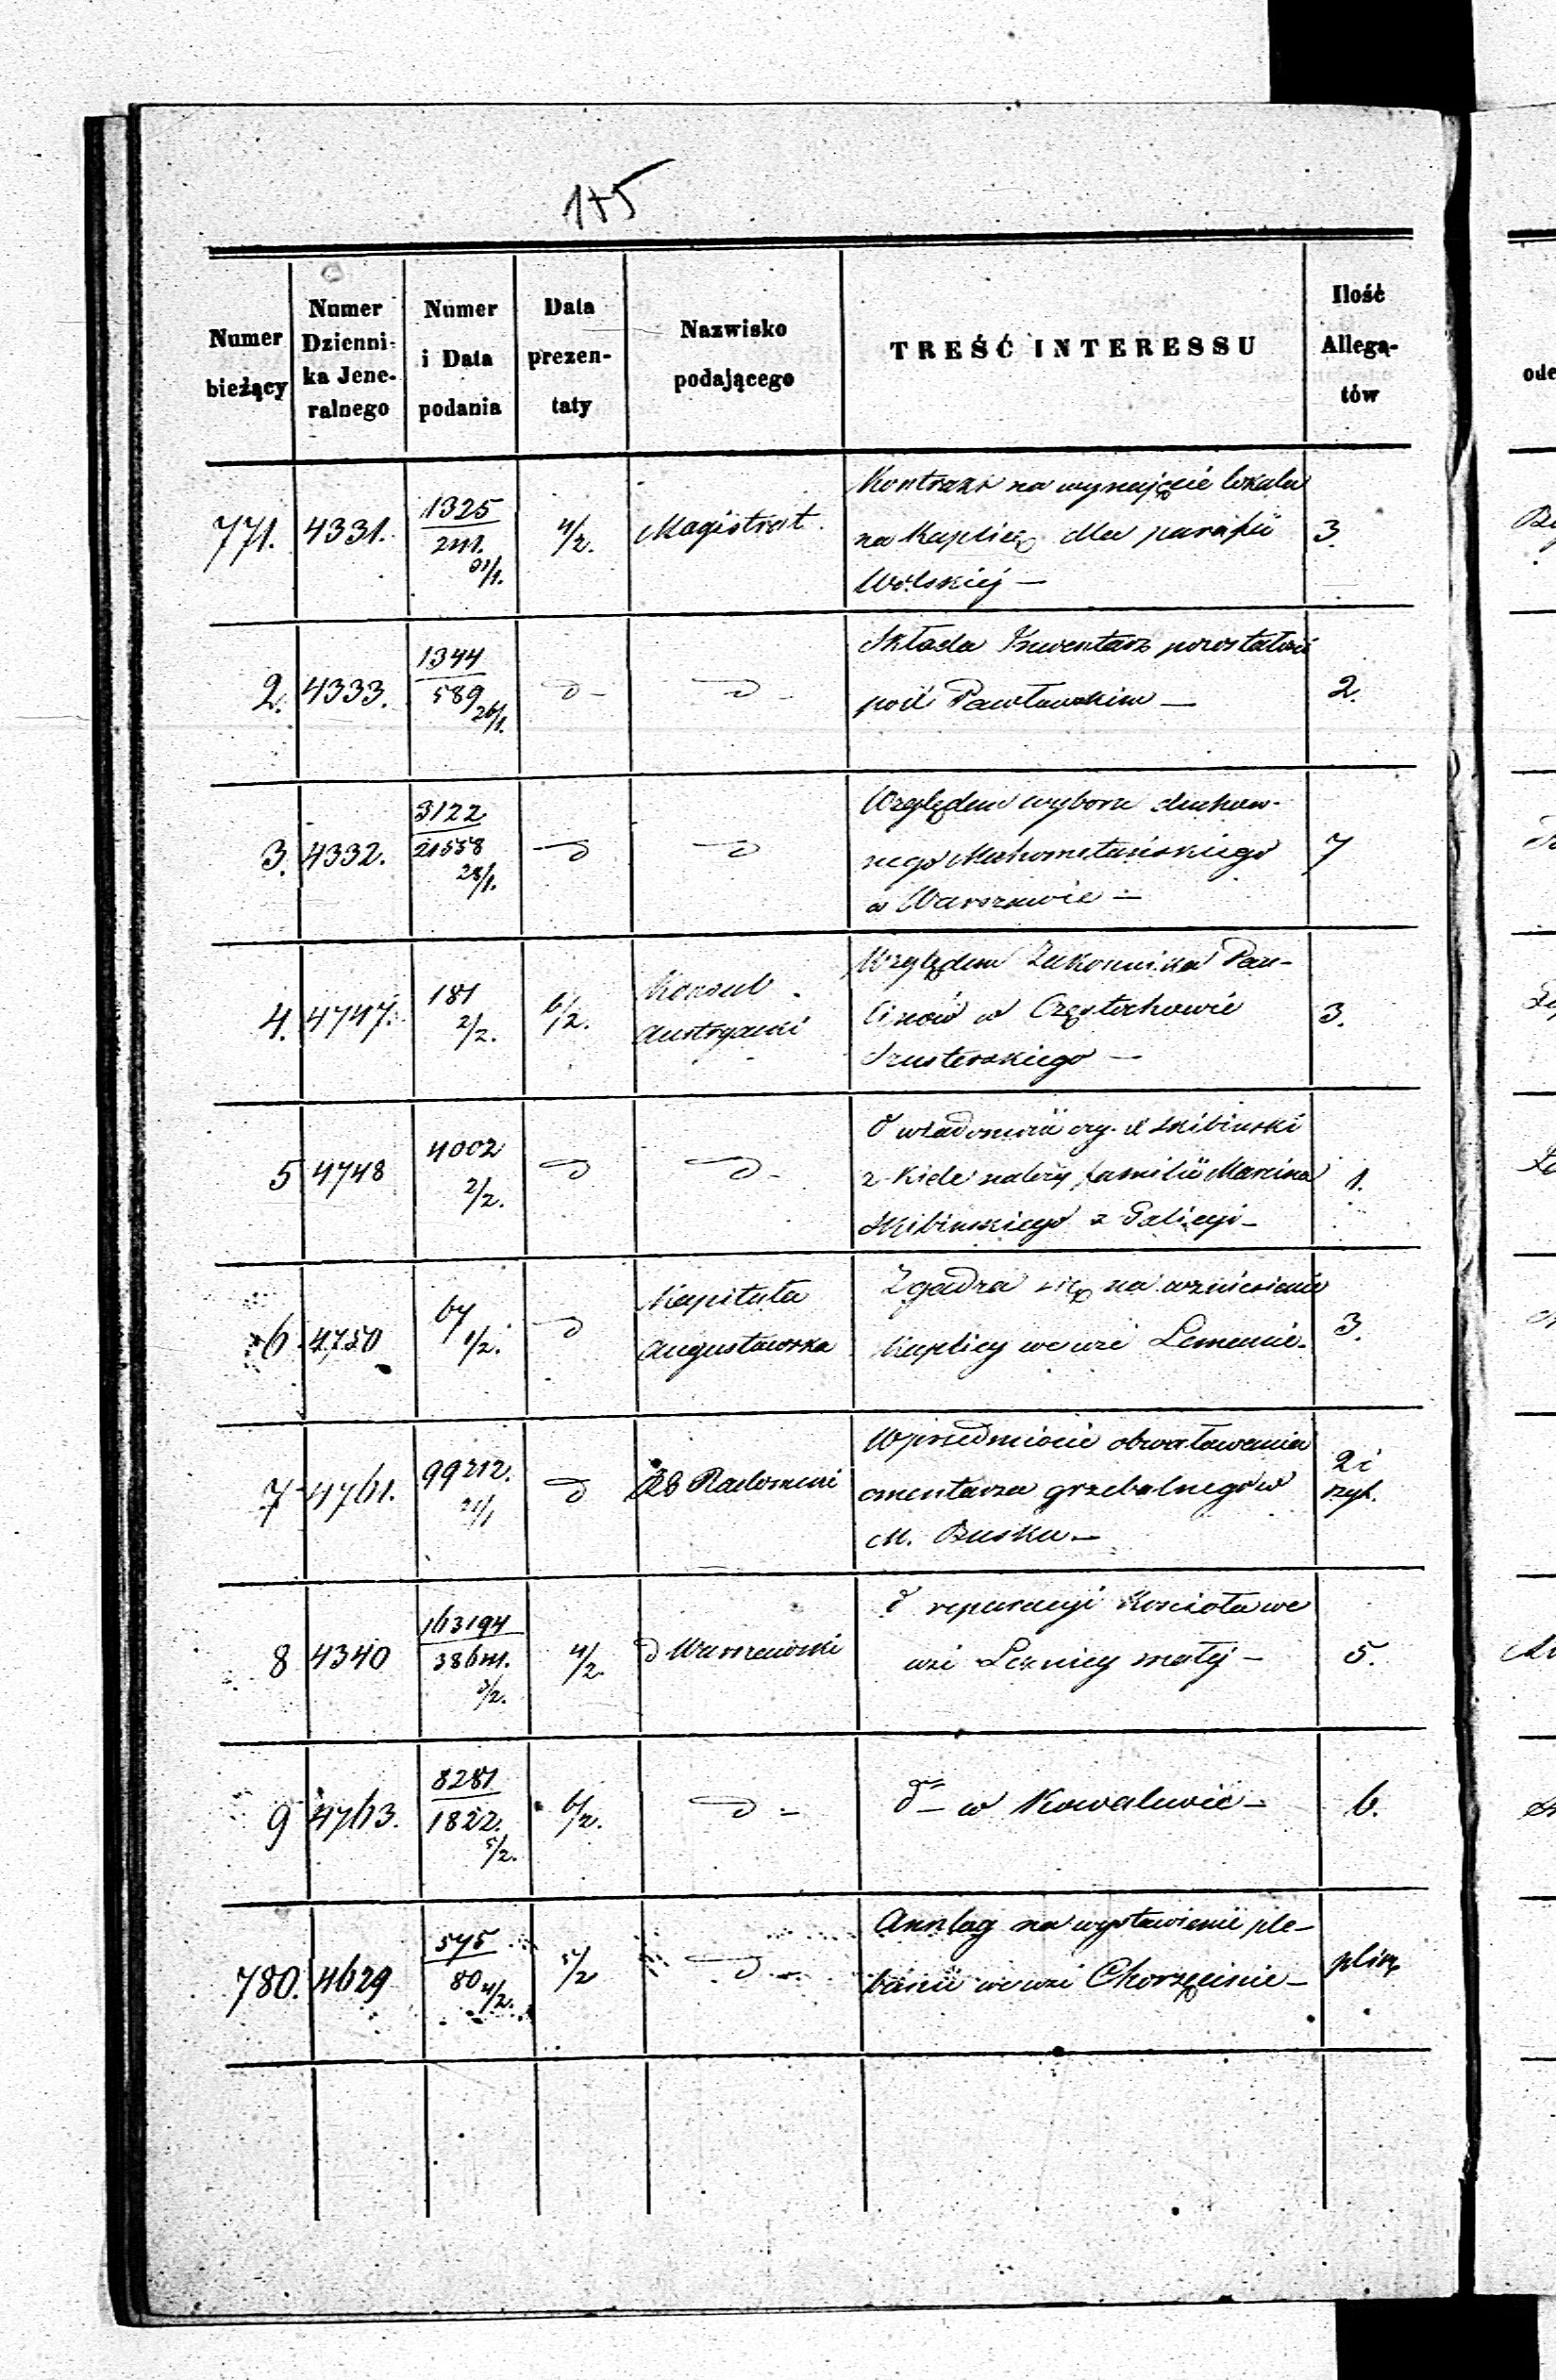 1+5
Numer bieżący
Numer Dzienni-ka Jene-ralnego
Numer i Data podania
Data prezen-taty
Nazwisko podającego
TREŚĆ INTERESSU
Ilość Allega-tów
771. 4331. 1325 31/1. 4/2. Magistrat. Kontrakt na wynajęcie lokalu 3.
na Kaplicę dla parafii
Wolskiej —
2. 4333. 1344 589 26/1. d- d- Składa Inwentarz pozostałości 2.
poś Pawłowskim —
3. 4332. 3122 21558 28/1. d d Względem wyboru duchow- 7
nego Mahometańskiego
w Warszawie —
4. 4747. 181 2/2. 6/2. Konsul Austryacki Względem Zakonnika Pau- 3.
linów w Częstochowie
Szusterskiego —
5 4748 4002 2/2. d d- O wiadomość czy X Skibiński 1.
z Kielc należy familii Marcina
Skibińskiego z Galicyi -
6 4750 67 1/2. d Kapituła Augustowska Zgadza się na wzniesienie 3.
Kaplicy we wsi
7 4761. 99212. 21/1 d RG Radomski W przedmiocie obwałowania 2 i
cmentarza grzebalnego w
M. Busku —
8 4340 163194 3/2. 4/2. d Warszawski O reparacyi Kościoła we 5.
wsi Leznicy małej —
9 4763. 8281 1822. 5/2. 6/2. d - d- w Kowalewie - 6.
780. 4629 575 80 4/2. 5/2 d - Anszlag na wystawienie ple-
banii we wsi Chorzęcinie —